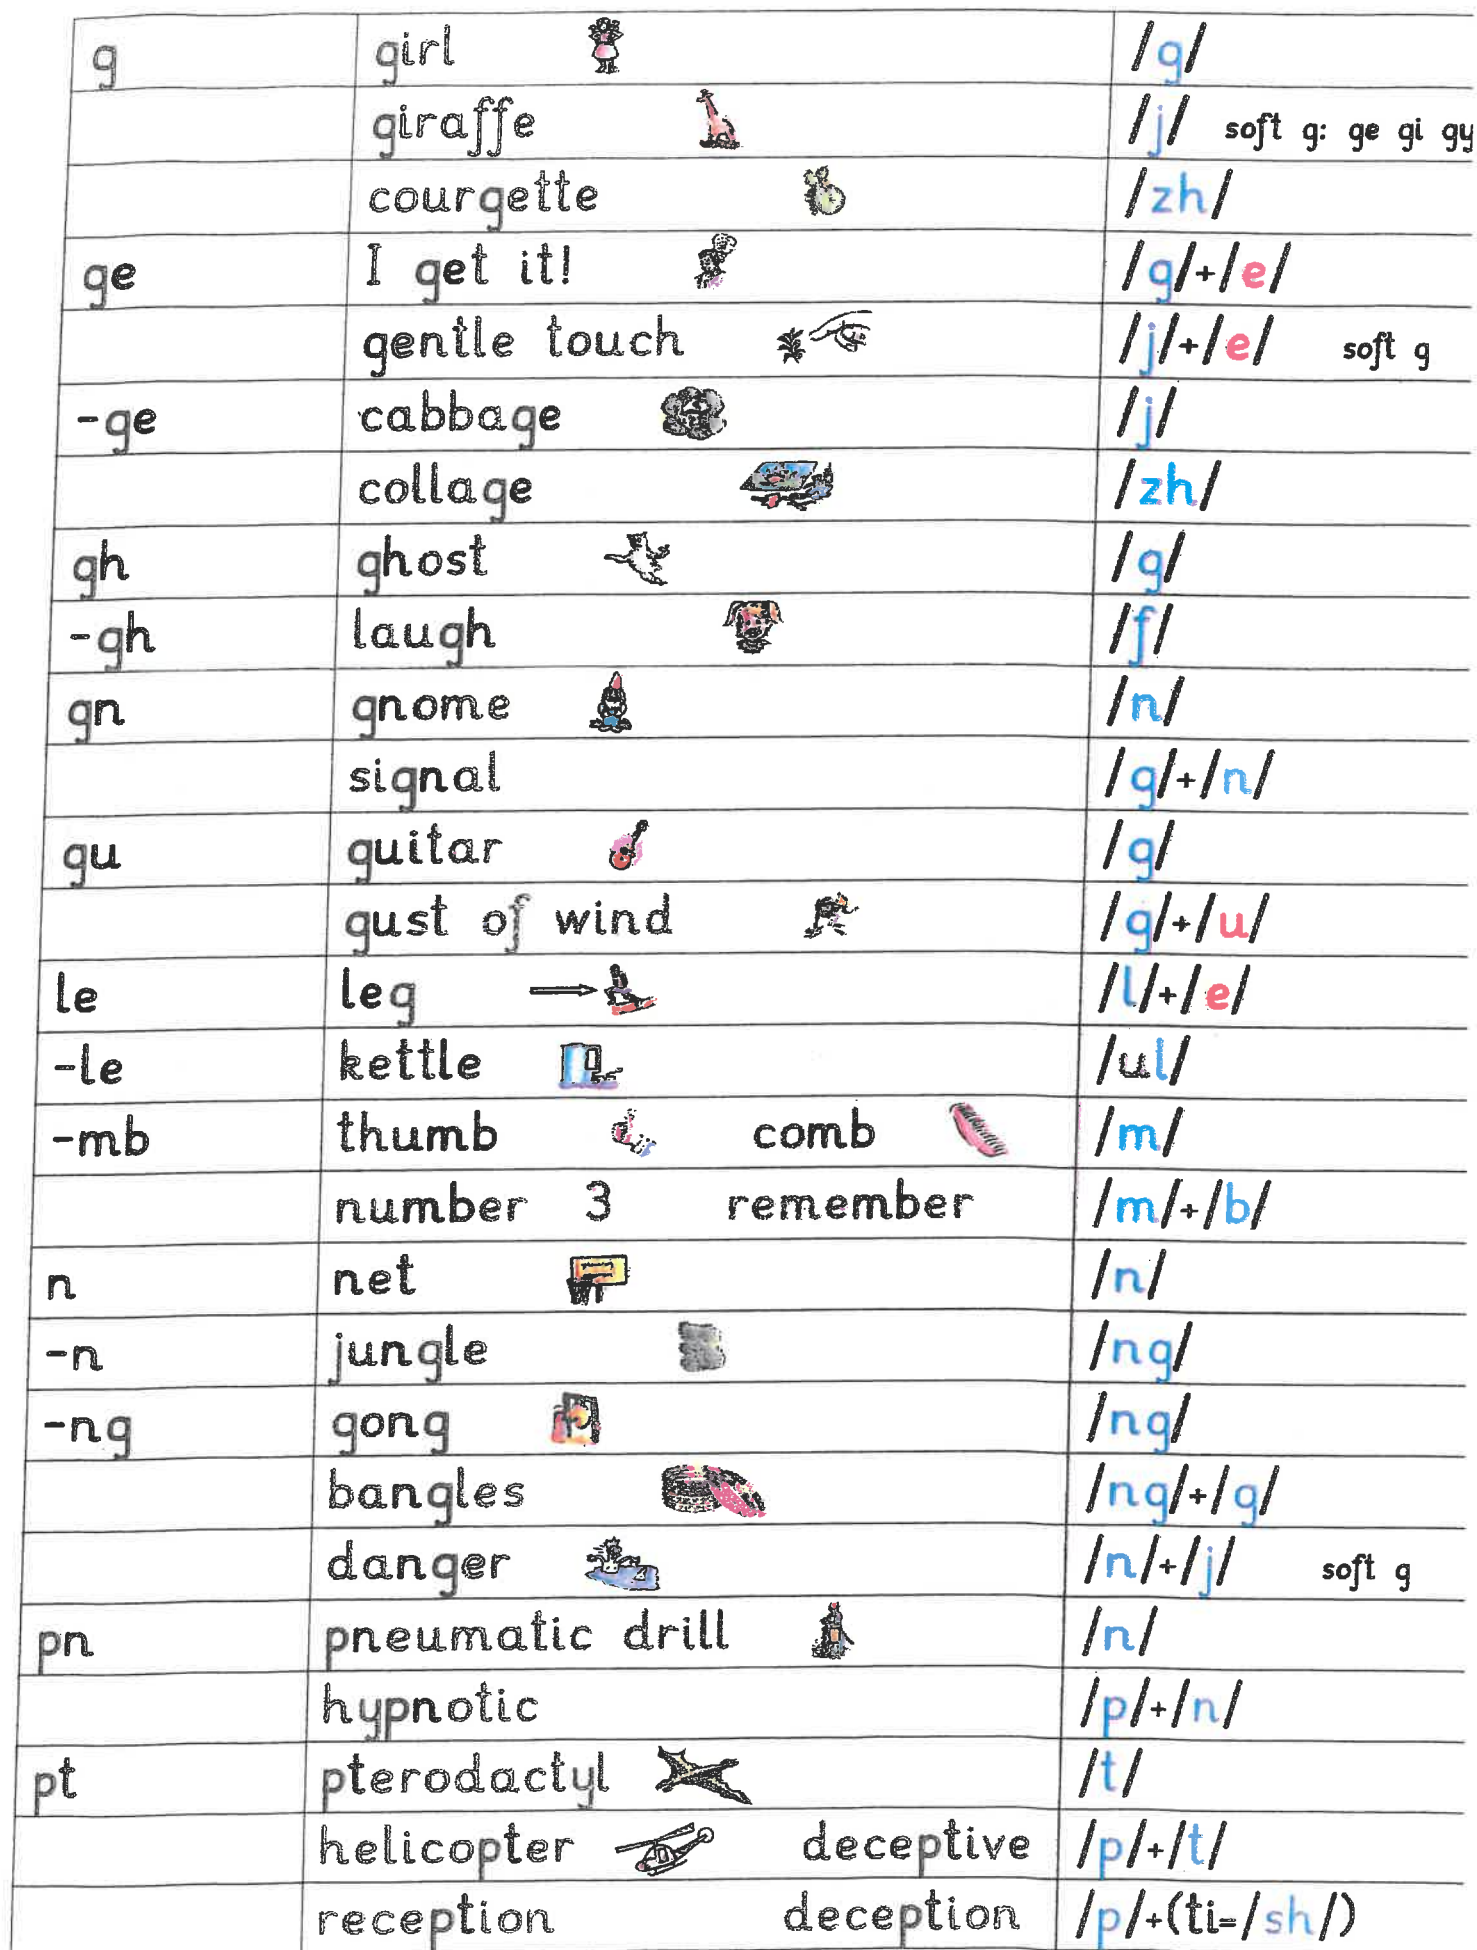 g girl /g/
giraffe /j/ soft g: ge gi gy
courgette /zh/
ge I get it! /g/+/e/
gentle touch /j/+/e/ soft g
-ge cabbage /j/
collage /zh/
gh ghost /g/
-gh laugh /f/
gn gnome /n/
signal /g/+/n/
gu guitar /g/
gust of wind /g/+/u/
le leg /l/+/e/
-le kettle /ul/
-mb thumb comb /m/
number 3 remember /m/+/b/
n net /n/
-n jungle /ng/
-ng gong /ng/
bangles /ng/+/g/
danger /n/+/j/ soft g
pn pneumatic drill /n/
hypnotic /p/+/n/
pt pterodactyl /t/
helicopter deceptive /p/+/t/
reception deception /p/+(ti=/sh/)